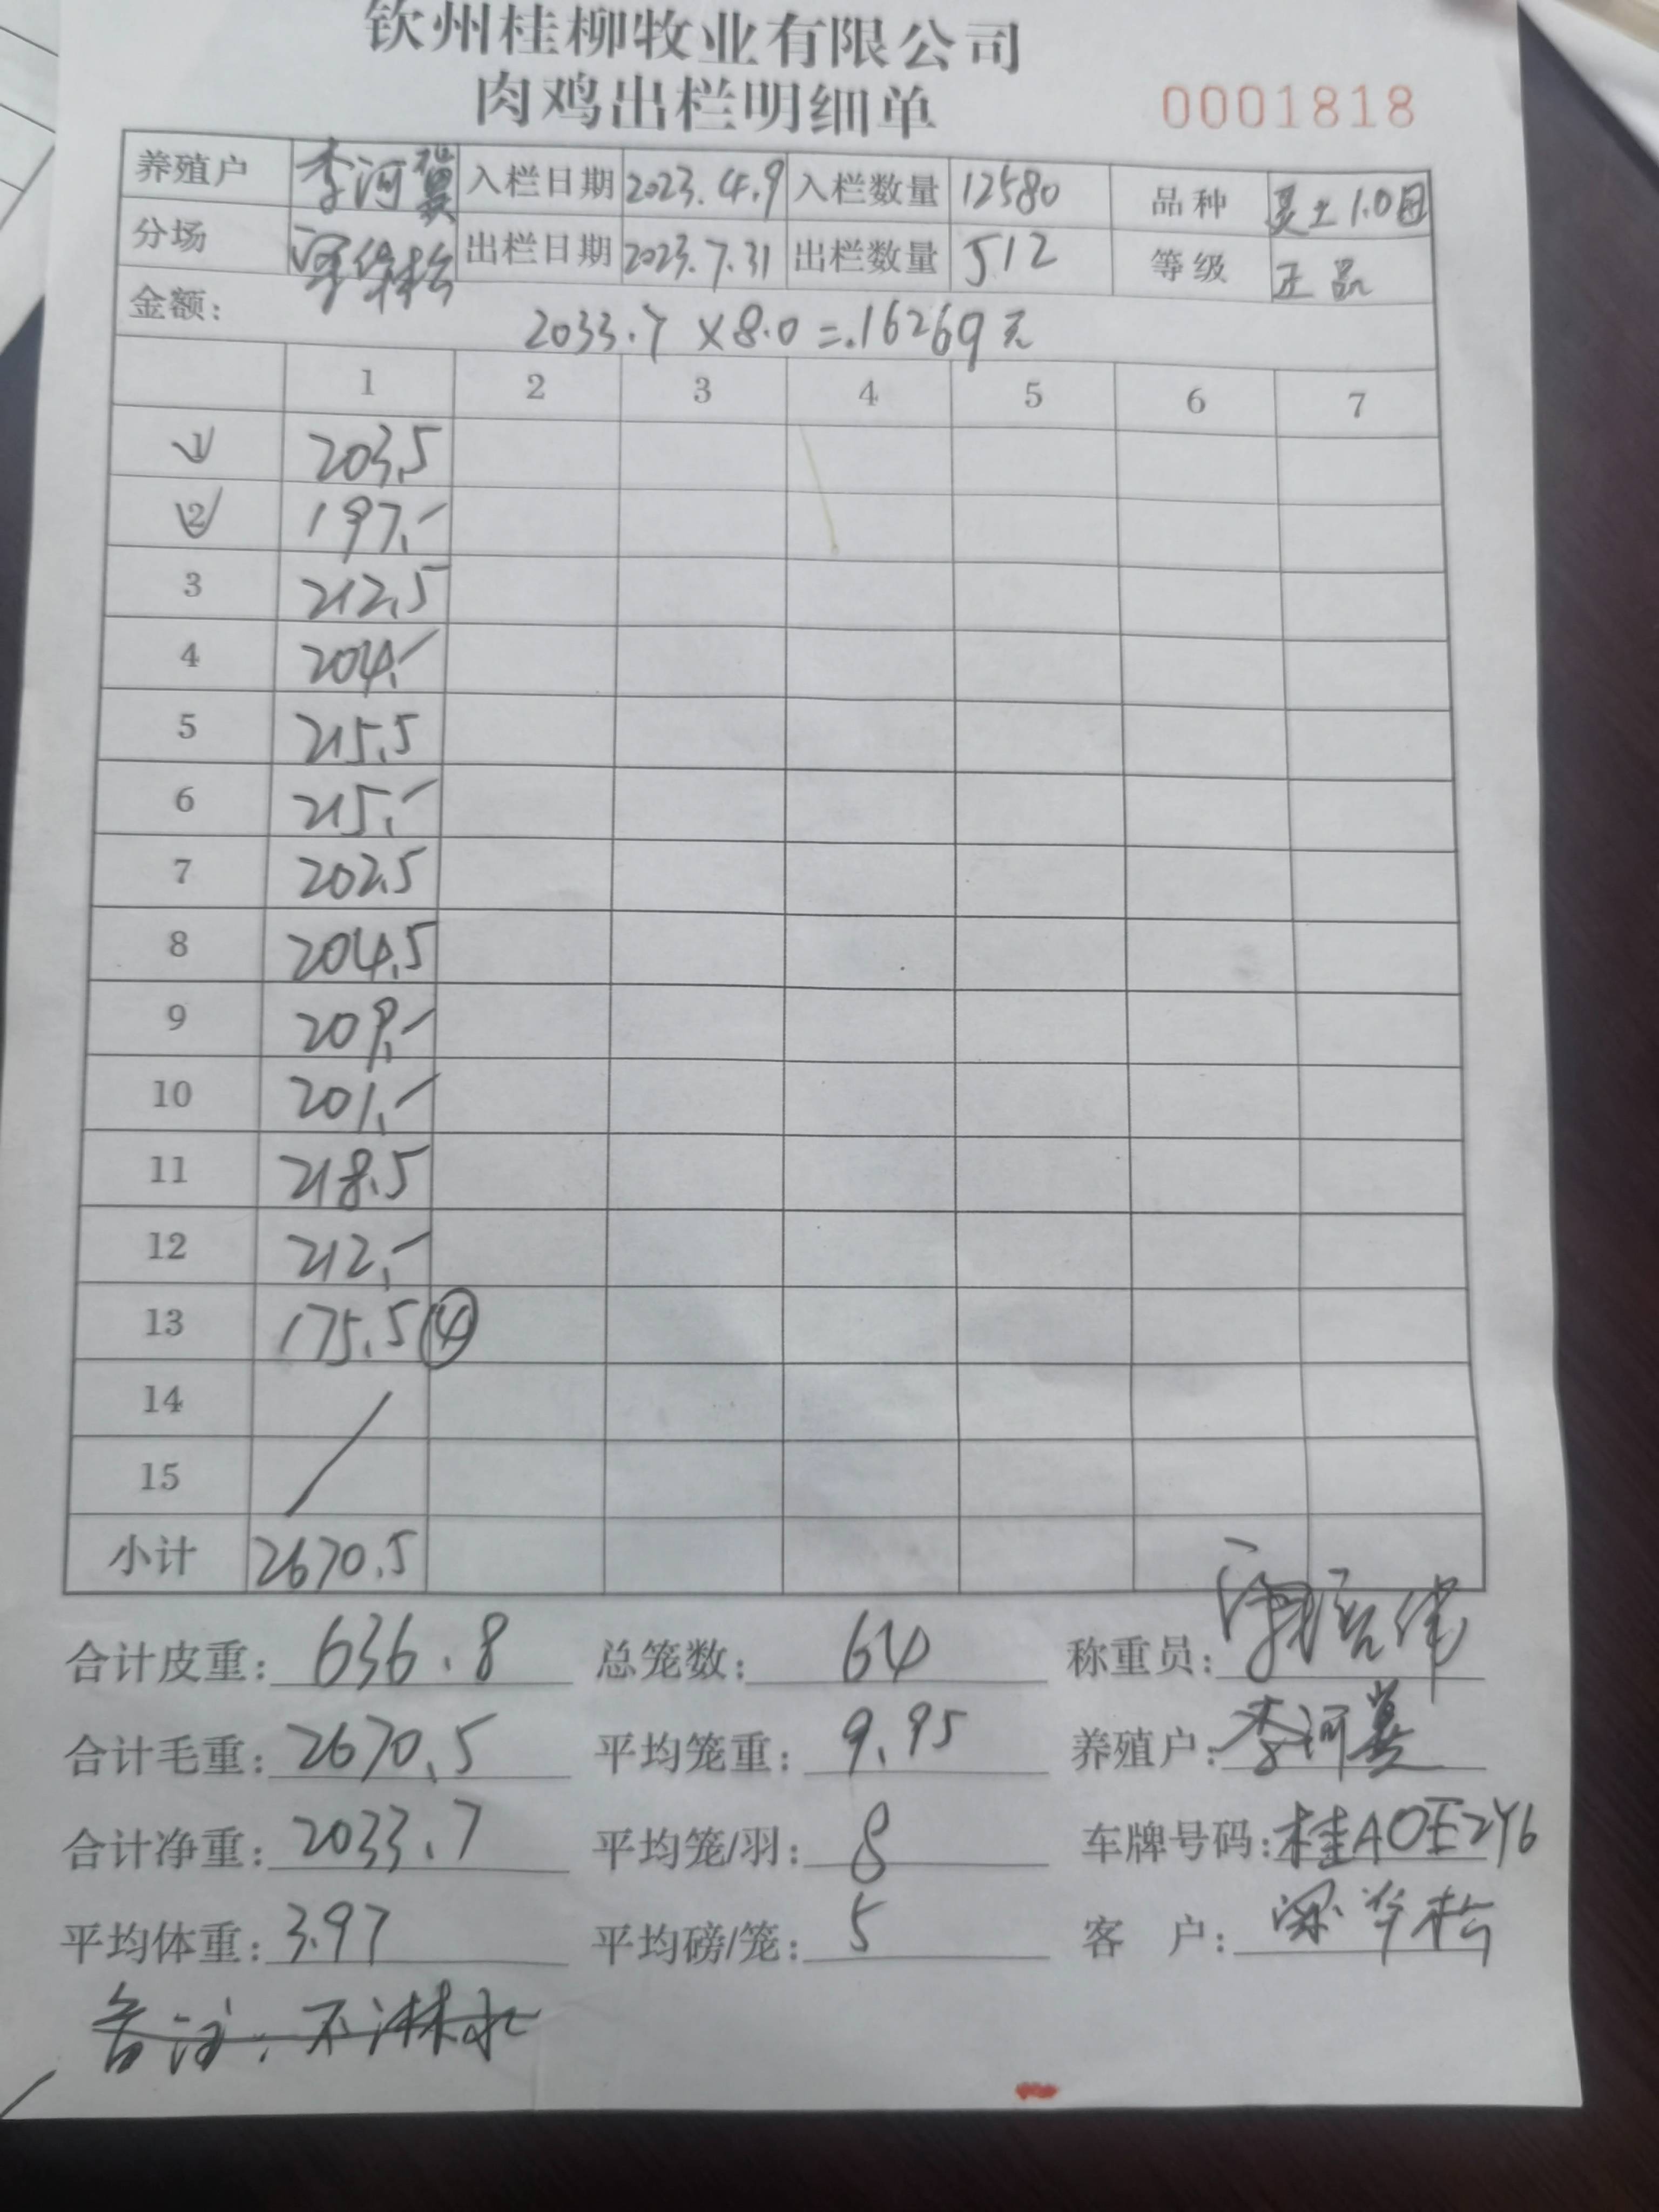 钦州桂柳牧业有限公司
肉鸡出栏明细单 0001818
养殖户 李河 入栏日期 2023.4.9 入栏数量 12580 品种 土1.0
分场 出栏日期 2023.7.31 出栏数量 512 等级 正品
金额: 2033.7 ×8.0 = 16269元
1 2 3 4 5 6 7
1 203.5
2 197.-
3 212.5
4 204.-
5 215.5
6 215.-
7 202.5
8 204.5
9 209.-
10 201.-
11 218.5
12 212.-
13 175.5 ④
14
15
小计 2670.5
合计皮重: 636.8 总笼数: 64 称重员:
合计毛重: 2670.5 平均笼重: 9.95 养殖户: 李河
合计净重: 2033.7 平均笼/羽: 8 车牌号码: 桂A0E2Y6
平均体重: 3.97 平均磅/笼: 5 客 户: 梁华松
备注: 不淋水